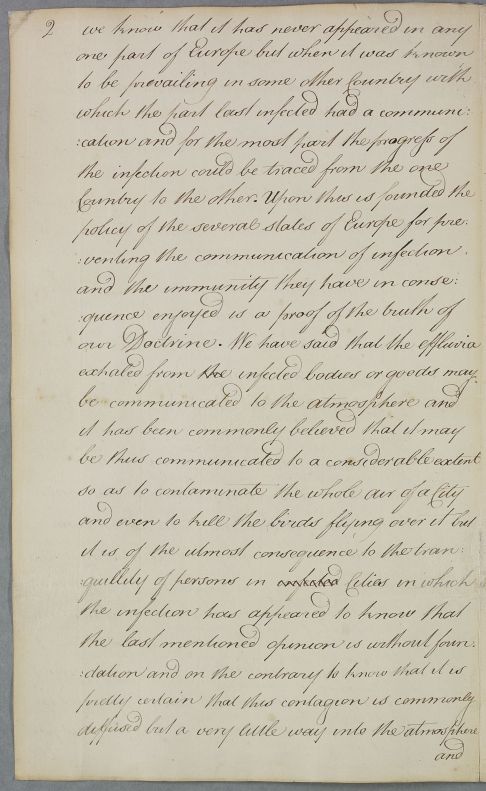 2 we know that it has never appeared in any
one part of Europe but when it was known
to be prevailing in some other Country with
which the part last infected had a communi:
:cation and for the most part the progress of
the infection could be traced from the one
Country to the other. Upon this is founded the
policy of the several states of Europe for pre:
:venting the communication of infection.
and the immunity they have in conse:
:quence enjoyed is a proof of the truth of
our Doctrine. We have said that the effluvia
exhaled from the infected bodies or goods may
be communicated to the atmosphere and
it has been commonly believed that it may
be thus communicated to a considerable extent
so as to contaminate the whole air of a City
and even to kill the birds flying over it but
it is of the utmost consequence to the tran:
:quillity of persons in infected Cities in which
the infection has appeared to know that
the last mentioned opinion is without foun:
:dation and on the contrary to know that it is
pretty certain that this contagion is commonly
diffused but a very little way into the atmosphere
and